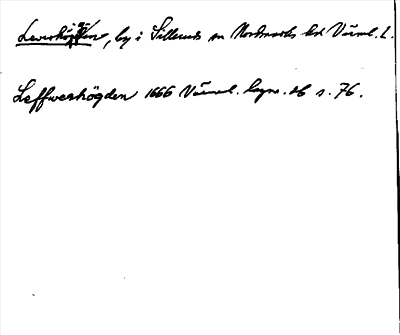 Leverhögen, by i Sillerud sn Nordmarks hd Värml. l.
Leffwerhögden 1666 Värml. bagsv. ob s. 76.